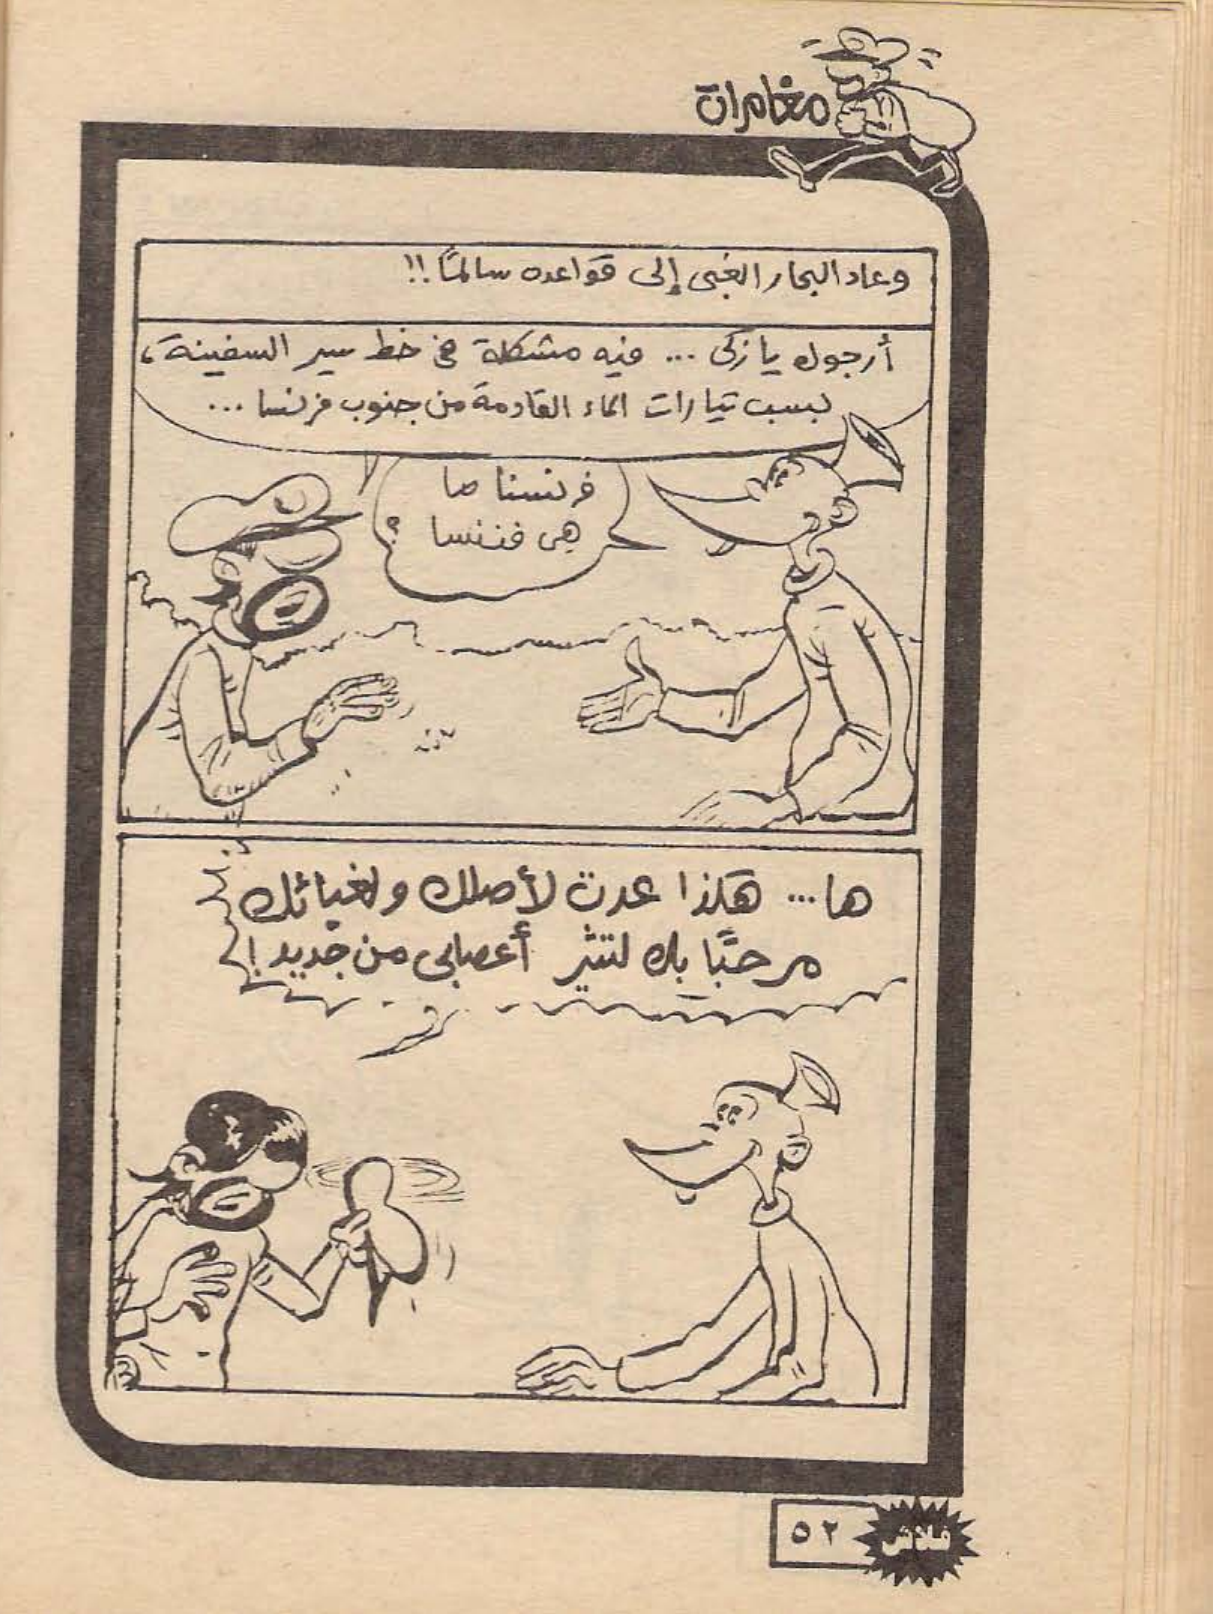 مغامرات
وعاد البحار الغبى إلى قواعده سالمًا!!
أرجوك يا زكى ... فيه مشكلة فى خط سير السفينة،
بسبب تيارات الماء القادمة من جنوب فرنسا ...
فرنسنا ما
هى فننسا ؟
ها... هكذا عدت لأصلك ولغبائك
مرحبًا بك لتثير أعصابى من جديد!
فلاش
٥٢